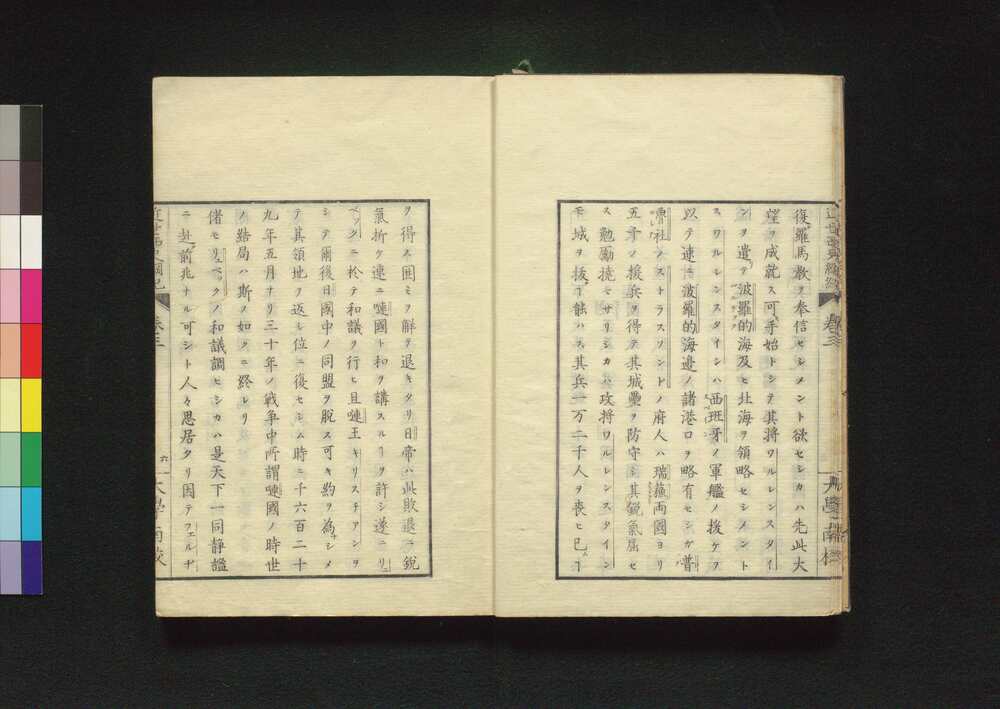 復羅馬教ヲ奉信セシメント欲セシカハ先此大
望ヲ成就ス可キ手始トシテ其将ワルレンスタイ
ンヲ遣テ波羅的海及ヒ北海ヲ領略セシメント
スワルレンスタインハ西班牙ノ軍艦ノ援ケヲ
以テ速ニ波羅的海邊ノ諸港口ヲ略有セシガ普
魯社ノストラスソンドノ府人ハ瑞嗹両國ヨリ
五千ノ援兵ヲ得テ其城壘ヲ防守シ其鋭氣屈セ
ス勉勵撓モサリシカハ攻将ワルレンスタイン
モ城ヲ抜ク能ハス其兵一万二千人ヲ喪ヒ
近世西史綱紀 卷三
大學南校
ヲ得ス囲ミヲ解ヲ退キタリ日帝ハ此敗退ニ鋭
氣折ケ速ニ嗹國ト和ヲ講スルヿヲ許シ遂ニリュ
ベックニ於テ和議ヲ行ヒ且嗹王キリスチアンヲ
シテ爾後日國中ノ同盟ヲ脱ス可キ約ヲ為サシメ
テ其領地ヲ返シ位ニ復セシム時ニ千六百二十
九年五月ナリ三十年ノ戦争中所謂嗹國ノ時世
ノ結局ハ斯ノ如クニ終レリ
偖モリュベックノ和議調ヒシカハ是天下一同靜謐
ニ赴ク前兆ナル可シト人々思居タリ因テフェルヂ
近世西史綱紀 卷三
六
大學南校